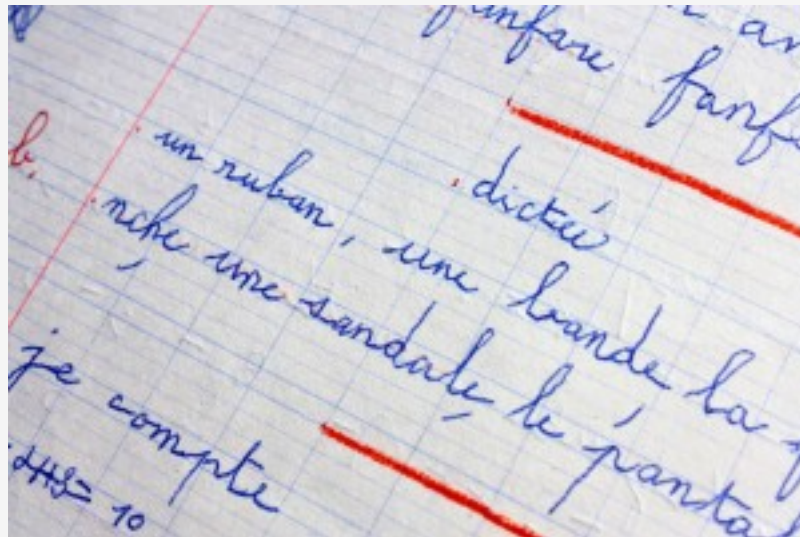 fanfare fanf
dictée
b.
un ruban, une bande la
nche une sandale, le panta
je compte
= 10